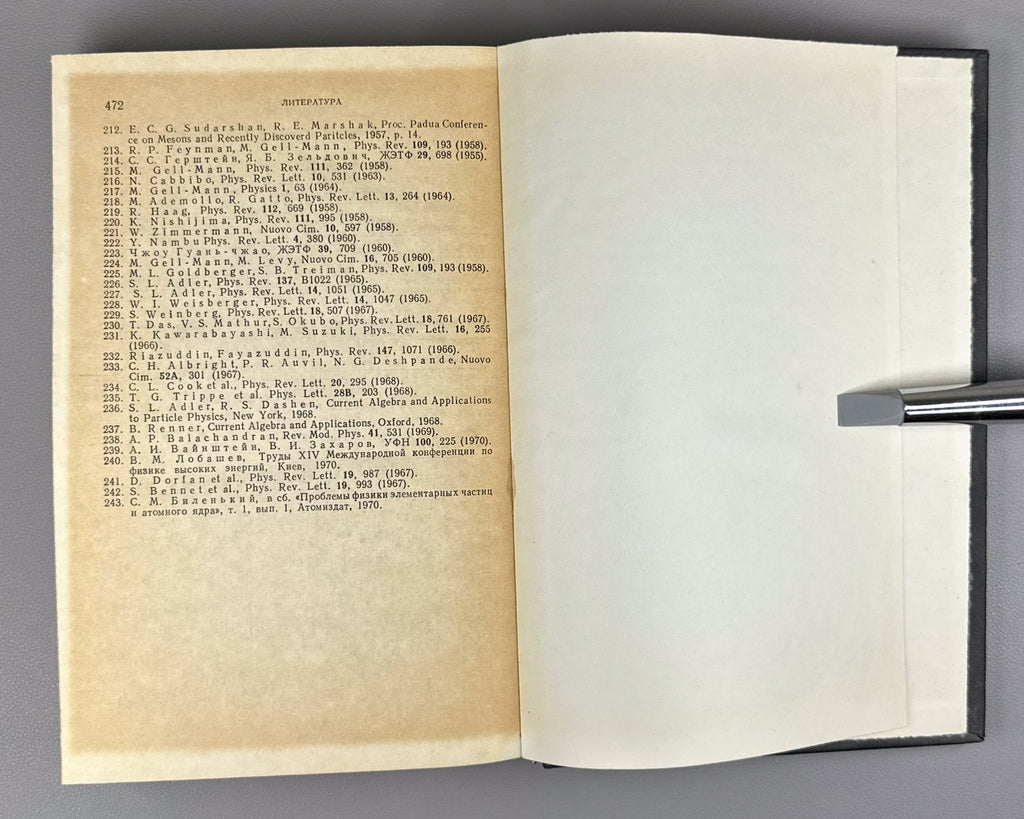 472
ЛИТЕРАТУРА
212. E. C. G. Sudarshan, R. E. Marshak, Proc. Padua Conferen-
ce on Mesons and Recently Discoverd Paritcles, 1957, p. 14.
213. R. P. Feynman, M. Gell-Mann, Phys. Rev. 109, 193 (1958).
214. С. С. Герштейн, Я. Б. Зельдович, ЖЭТФ 29, 698 (1955).
215. M. Gell-Mann, Phys. Rev. 111, 362 (1958).
216. N. Cabbibo, Phys. Rev. Lett. 10, 531 (1963).
217. M. Gell-Mann, Physics 1, 63 (1964).
218. M. Ademollo, R. Gatto, Phys. Rev. Lett. 13, 264 (1964).
219. R. Haag, Phys. Rev. 112, 669 (1958).
220. K. Nishijima, Phys. Rev. 111, 995 (1958).
221. W. Zimmermann, Nuovo Cim. 10, 597 (1958).
222. Y. Nambu Phys. Rev. Lett. 4, 380 (1960).
223. Чжоу Гуань-чжао, ЖЭТФ 39, 709 (1960).
224. M. Gell-Mann, M. Levy, Nuovo Cim. 16, 705 (1960).
225. M. L. Goldberger, S. B. Treiman, Phys. Rev. 109, 193 (1958).
226. S. L. Adler, Phys. Rev. 137, B1022 (1965).
227. S. L. Adler, Phys. Rev. Lett. 14, 1051 (1965).
228. W. I. Weisberger, Phys. Rev. Lett. 14, 1047 (1965).
229. S. Weinberg, Phys. Rev. Lett. 18, 507 (1967).
230. T. Das, V. S. Mathur, S. Okubo, Phys. Rev. Lett. 18, 761 (1967).
231. K. Kawarabayashi, M. Suzuki, Phys. Rev. Lett. 16, 255
(1966).
232. Riazuddin, Fayazuddin, Phys. Rev. 147, 1071 (1966).
233. C. H. Albright, P. R. Auvil, N. G. Deshpande, Nuovo
Cim. 52A, 301 (1967).
234. C. L. Cook et al., Phys. Rev. Lett. 20, 295 (1968).
235. T. G. Trippe et al. Phys. Lett. 28B, 203 (1968).
236. S. L. Adler, R. S. Dashen, Current Algebra and Applications
to Particle Physics, New York, 1968.
237. B. Renner, Current Algebra and Applications, Oxford, 1968.
238. A. P. Balachandran, Rev. Mod. Phys. 41, 531 (1969).
239. А. И. Вайнштейн, В. И. Захаров, УФН 100, 225 (1970).
240. В. М. Лобашев, Труды XIV Международной конференции по
физике высоких энергий, Киев, 1970.
241. D. Dorfan et al., Phys. Rev. Lett. 19, 987 (1967).
242. S. Bennet et al., Phys. Rev. Lett. 19, 993 (1967).
243. С. М. Биленький, в сб. «Проблемы физики элементарных частиц
и атомного ядра», т. 1, вып. 1, Атомиздат, 1970.